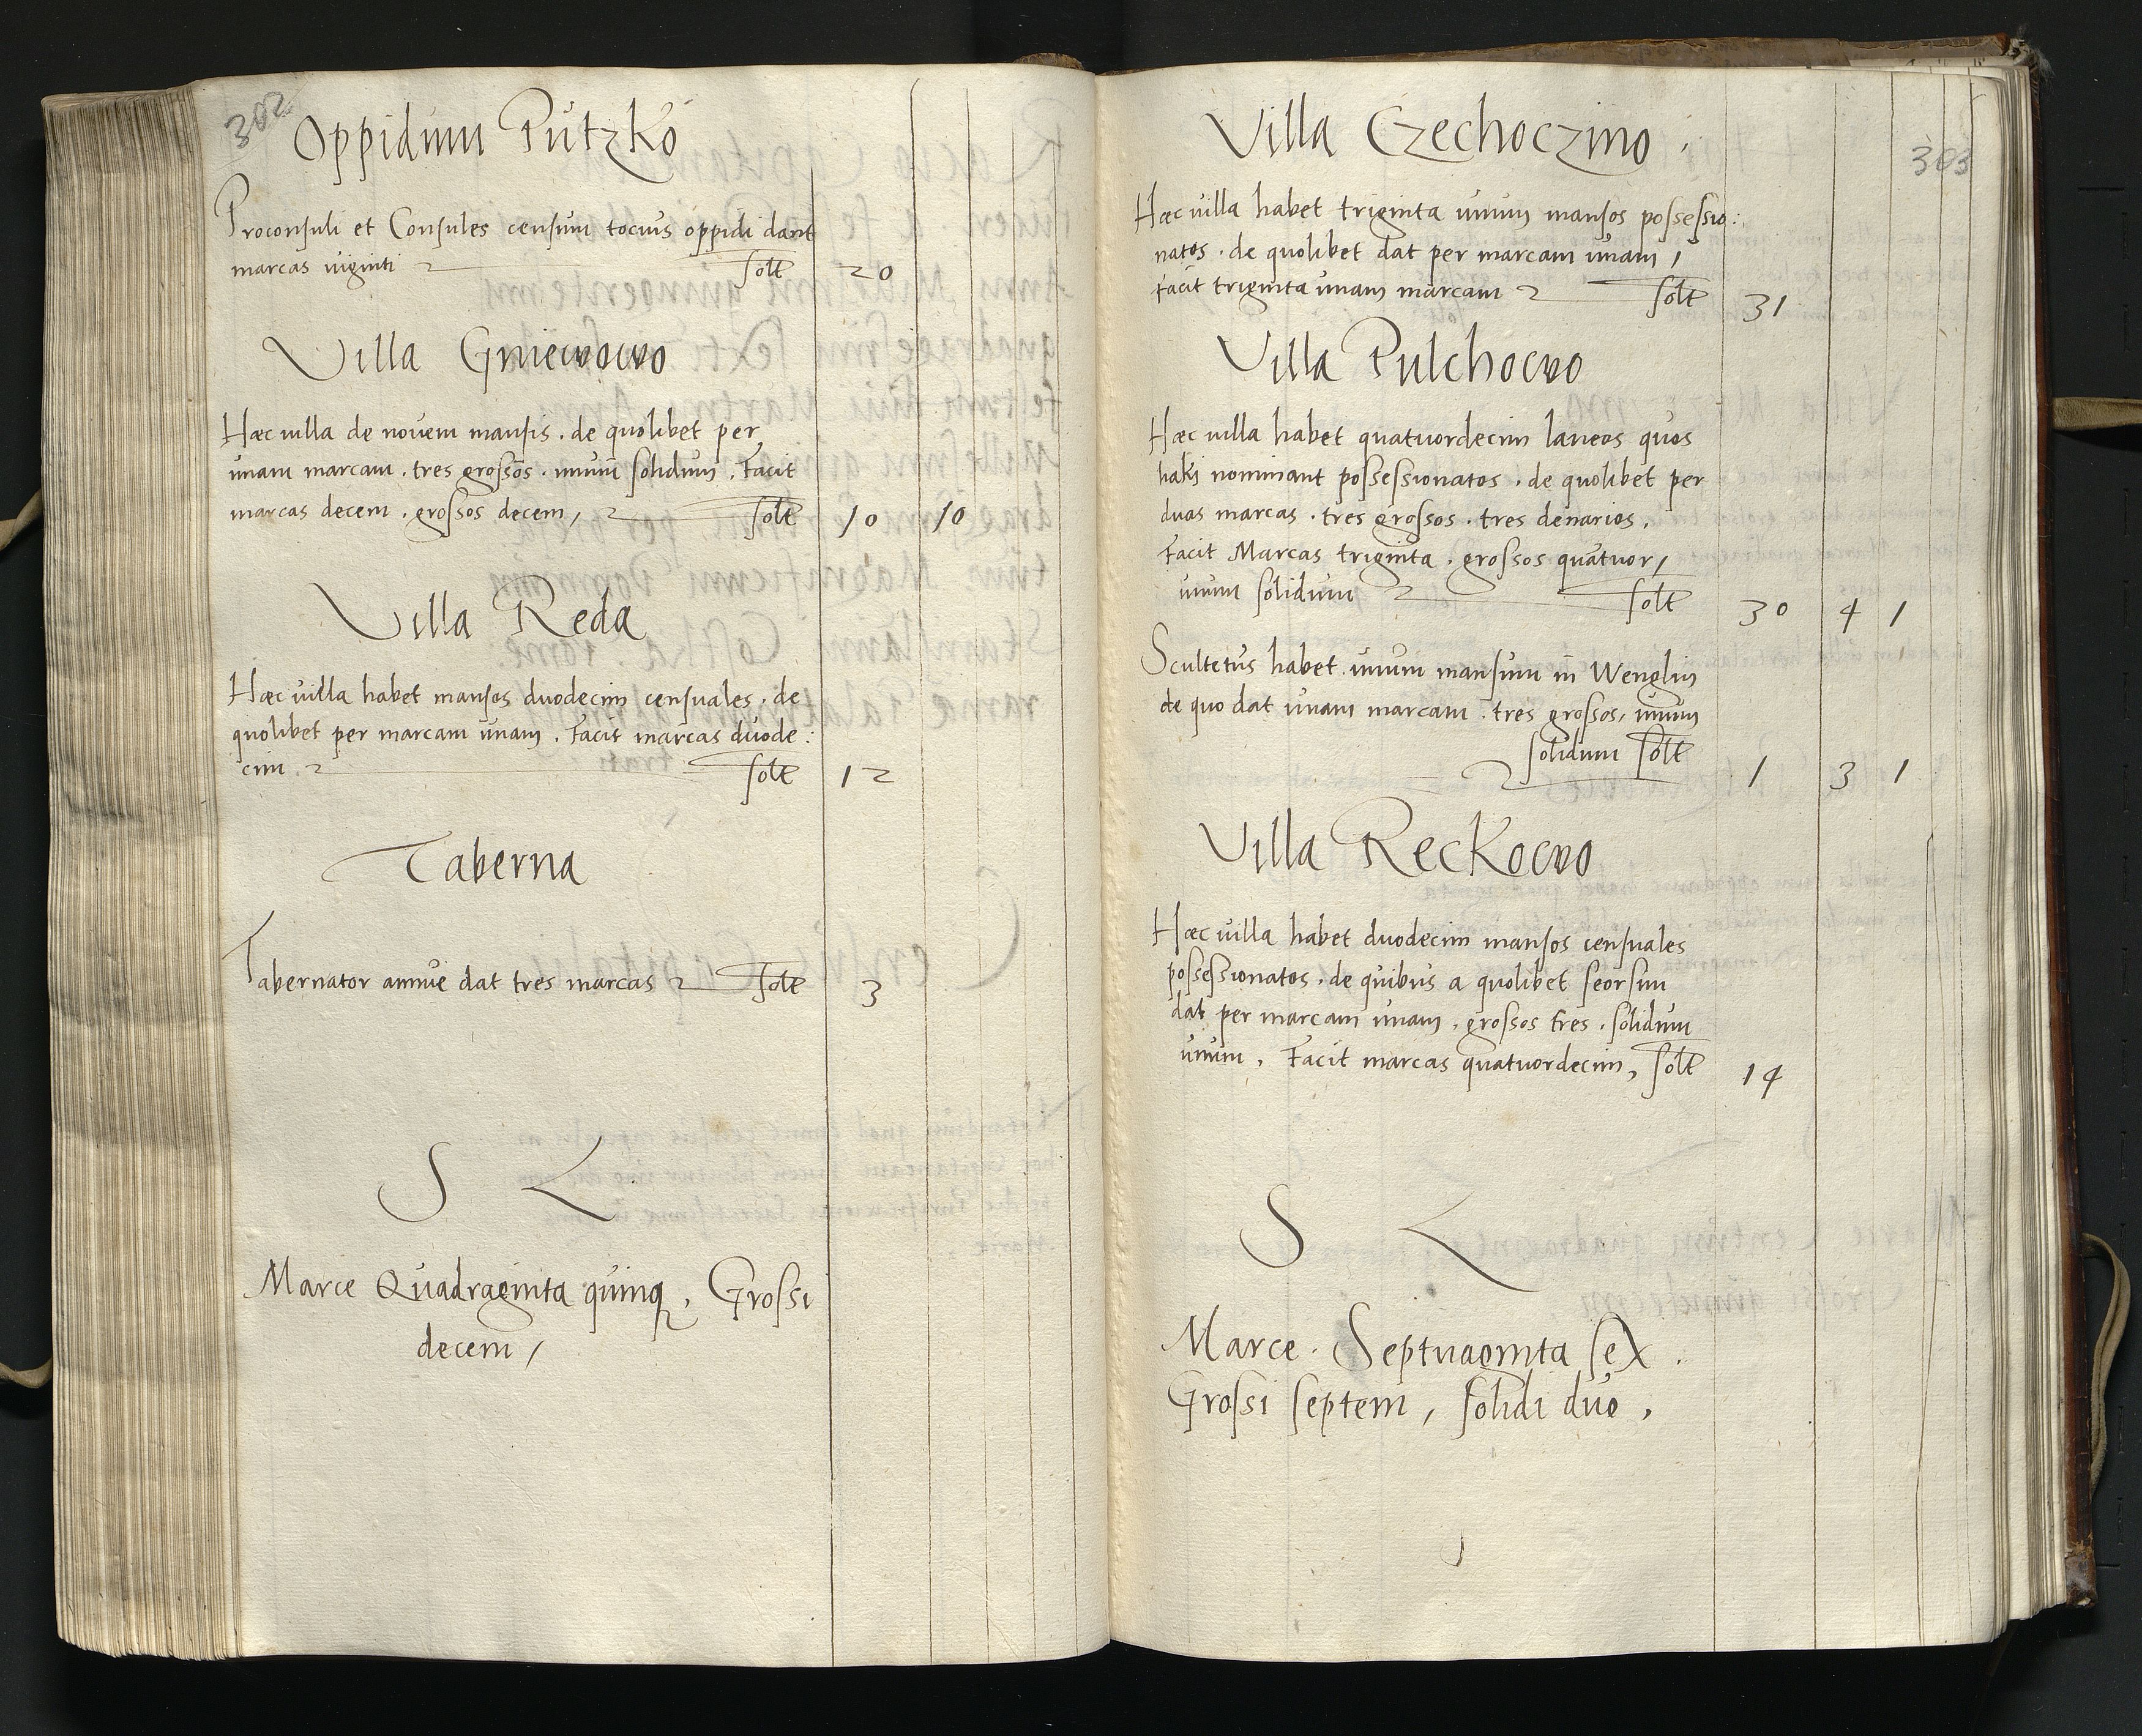 302
Oppidum Putzko
Proconsuli et Consules censum tocius oppidi dant
marcas viginti Solt 20
Villa Gniewowo
Hæc villa de novem mansis . de quolibet per
unam marcam . tres grossos . unum solidum . Facit
marcas decem . grossos decem , Solt 10 10
Villa Reda
Hæc villa habet mansos duodecim censuales . de
quolibet per marcam unam . Facit marcas duode:
cim . Solt 12
Taberna
Tabernator annue dat tres marcas Solt 3
S L
Marce Quadraginta quinq, Grossi
decem ,
303
Villa Czechoczino .
Hæc villa habet triginta unum mansos possessio:
natos . de quolibet dat per marcam unam ,
facit triginta unam marcam Solt 31
Villa Pulchowo
Hæc villa habet quatuordecim laneos quos
haki nominant possessionatos . de quolibet per
duas marcas . tres grossos . tres denarios .
Facit Marcas triginta . grossos quatuor ,
unum solidum Solt 30 4 1
Scultetus habet unum mansum in Wenglin
de quo dat unam marcam . tres grossos , unum
solidum Solt 1 3 1
Villa Reckowo
Hæc villa habet duodecim mansos censuales
possessionatos . de quibus a quolibet seorsim
dat per marcam unam , grossos tres . solidum
unum , Facit marcas quatuordecim , Solt 14
S L
Marce . Septuaginta sex .
Grossi septem , solidi duo ,